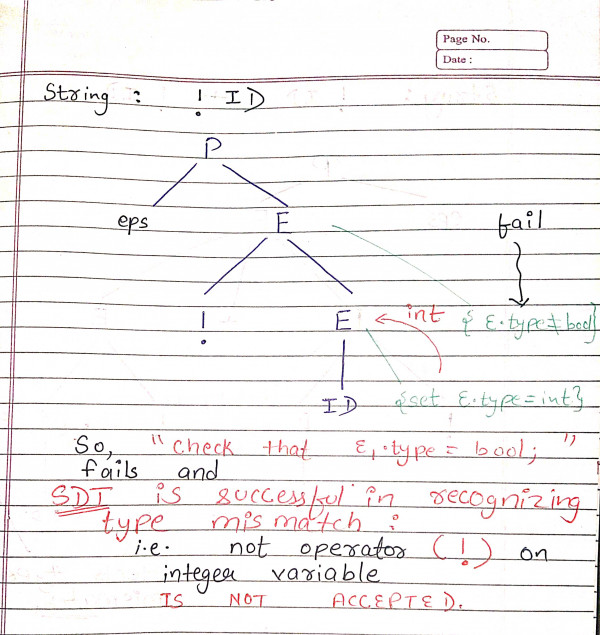 Page No.
Date :
String : ! ID
P
eps E fail
! E int { E.type ≠ bool}
ID {set E.type = int}
So, "check that E₁.type = bool; "
fails and
SDT is successful in recognizing
type mismatch :
i.e. not operator (!) on
integer variable
IS NOT ACCEPTED.